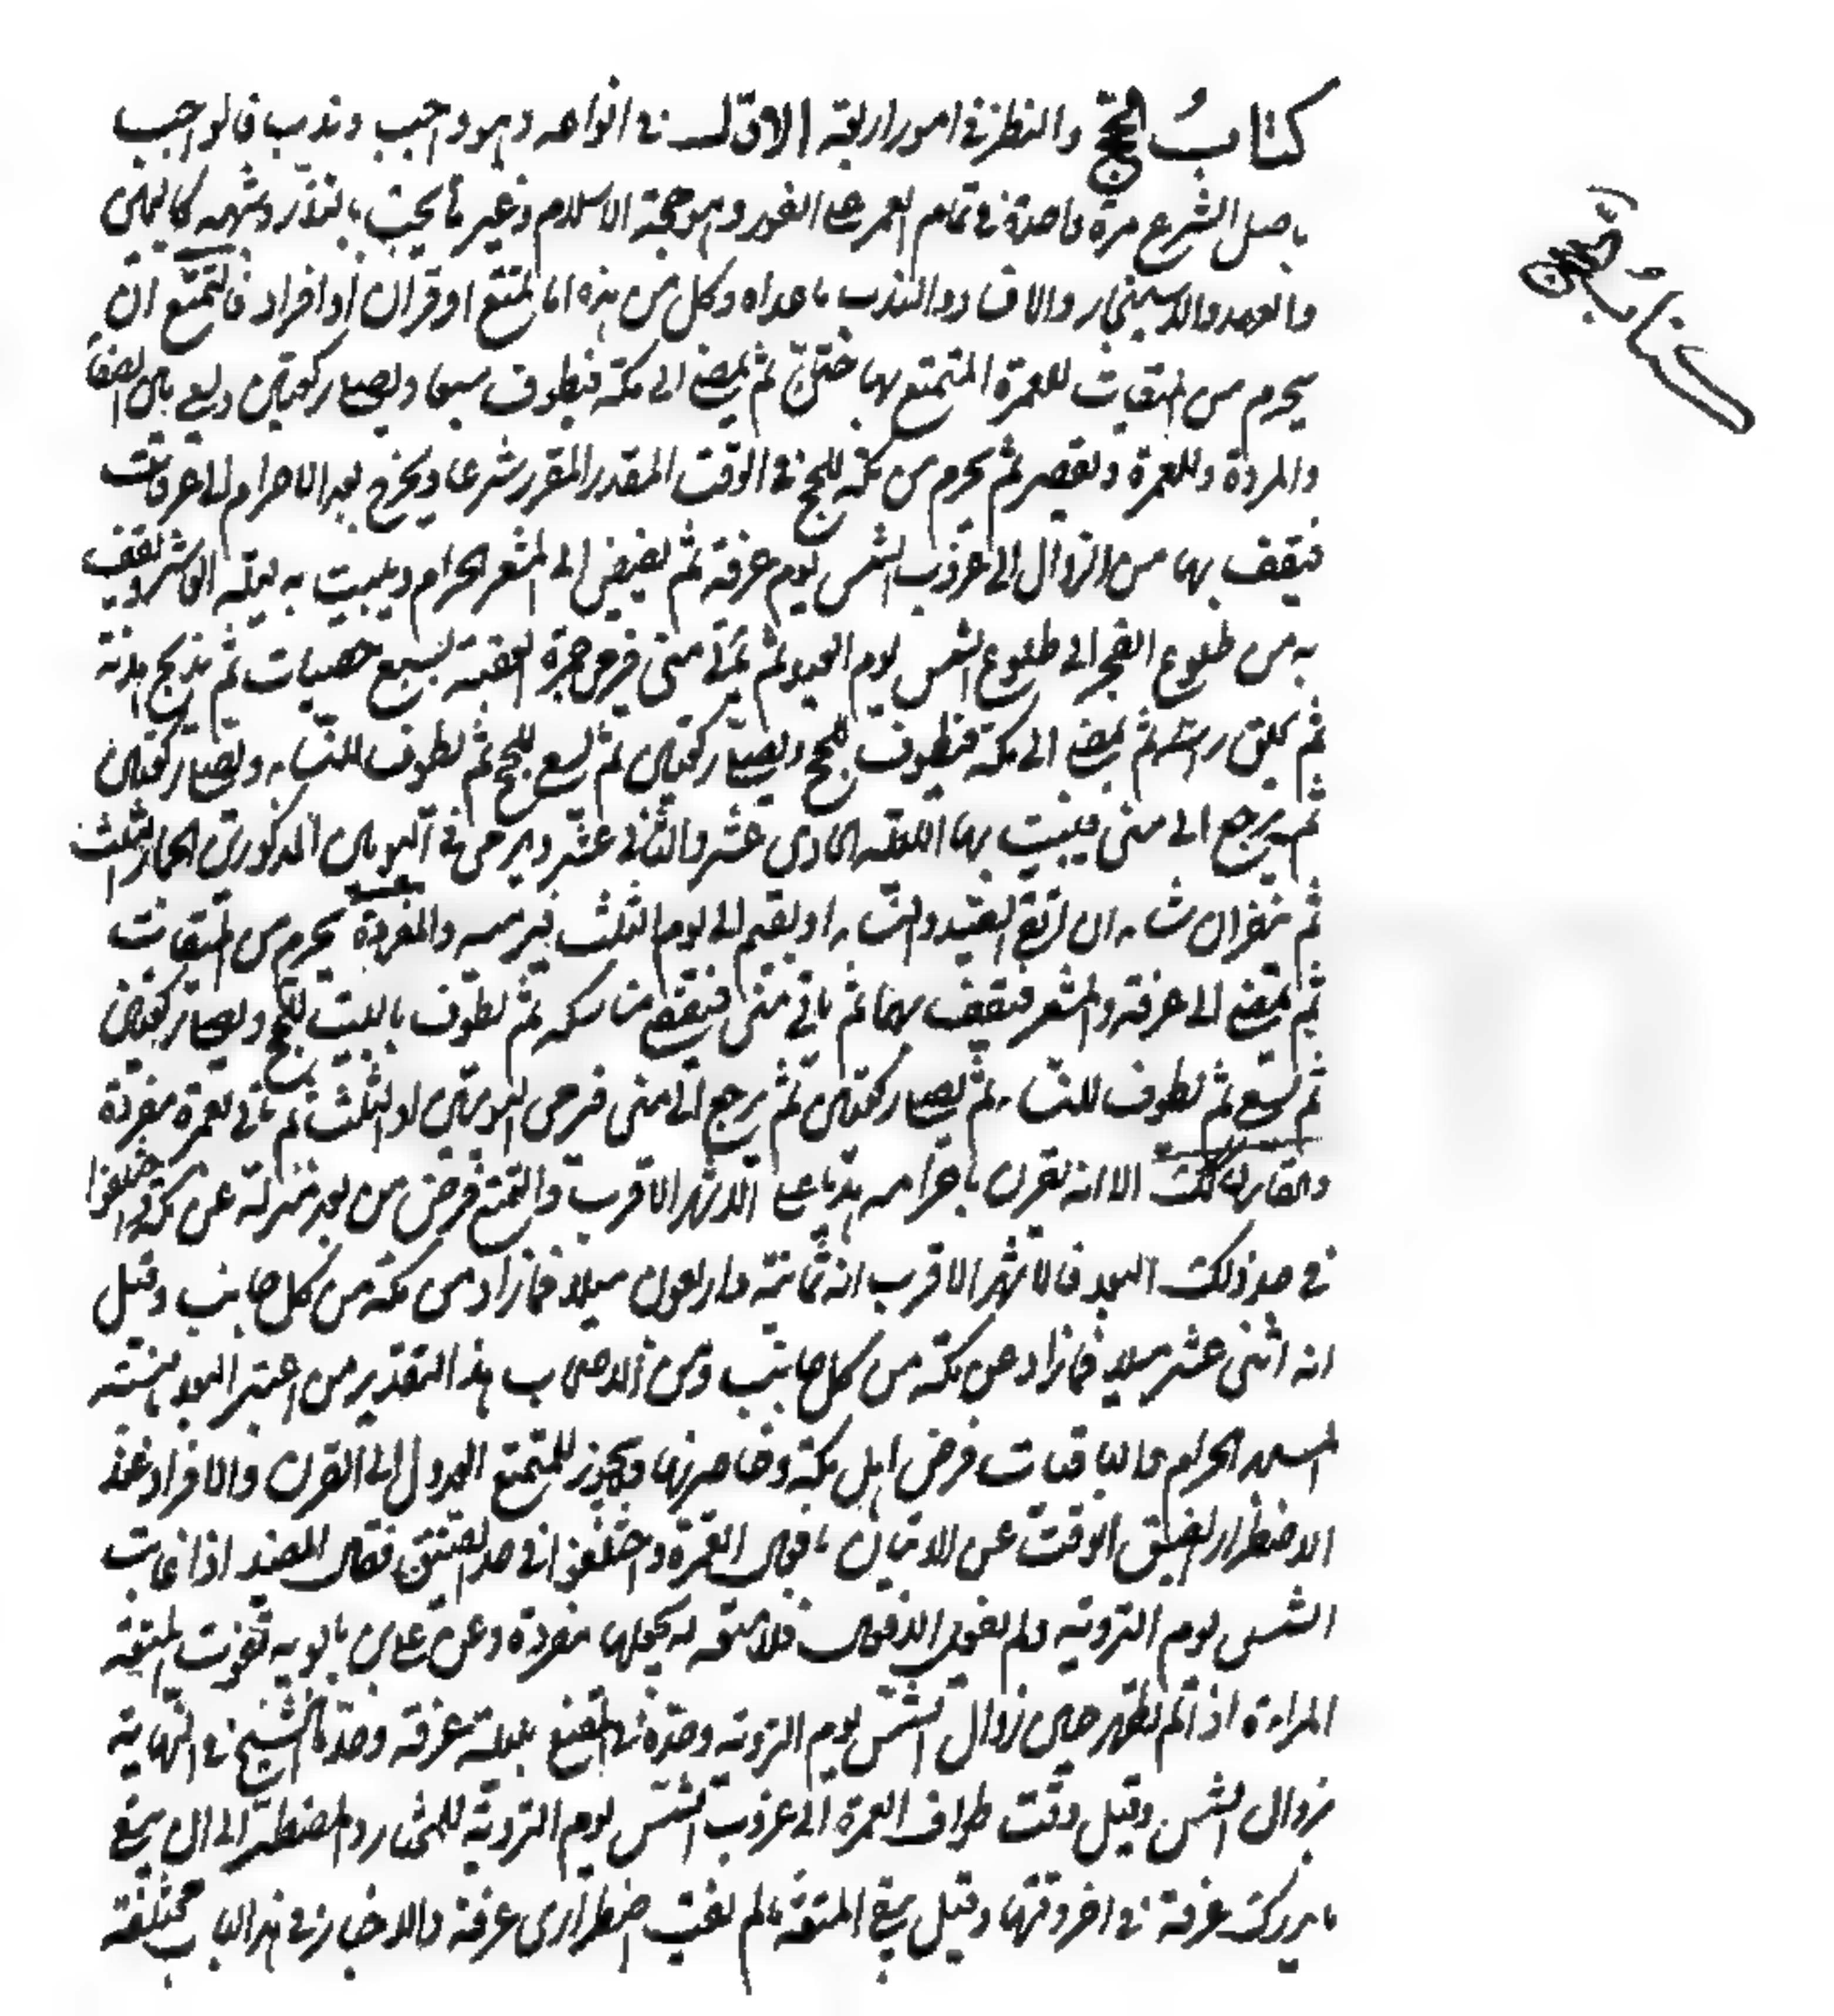 كتاب الحج والنظر في امور اربعة الاول في انواعه وهو واجب وندب فالواجب
باصل الشرع مرة واحدة في تمام العمر على الفور وهو حجة الاسلام وغيره ما يجب بالنذر وشبهه كاليمين
والعهد والاستيجار والافساد والندب ما عداه وكل من هذه اما تمتع او قران او افراد فالتمتع ان
يحرم من الميقات للعمرة المتمتع بها ثم يمضي الى مكة فيطوف سبعا ويصلي ركعتين ويسعى بين الصفا
والمروة للعمرة ويقصر ثم يحرم من مكة للحج في الوقت المقدر المقرر شرعا ويخرج بعد الاحرام الى عرفات
فيقف بها من الزوال الى غروب الشمس يوم عرفة ثم يفيض الى المشعر الحرام ويبيت به ليلة العاشر ويقف
به من طلوع الفجر الى طلوع الشمس يوم العيد ثم يأتي منى فيرمي جمرة العقبة بسبع حصيات ثم يذبح هديه
ثم يحلق راسه ثم يمضي الى مكة فيطوف للحج ويصلي ركعتين ثم يسعى للحج ثم يطوف للنساء ويصلي ركعتين
ثم يرجع الى منى فيبيت بها الليلة الحادي عشر والثاني عشر ويرمي في اليومين المذكورين الجمار الثلث
ثم ينفر ان شاء ان اتقى الصيد والنساء او يقيم الى يوم الثلث فيرميه والمفرد يحرم من الميقات
ثم يمضي الى عرفة والمشعر فيقف بهما ثم ياتي منى فيقضي مناسكه ثم يطوف بالبيت للحج ويصلي ركعتين
ثم يسعى ثم يطوف للنساء ثم يصلي ركعتين ثم يرجع الى منى فيرمي اليومين او الثلث ثم ياتي بعمرة مفردة
والقارن كذلك الا انه يقرن باحرامه هديا على الاشهر الاقرب والتمتع فرض من بعد منزله عن مكة واختلفوا
في حد ذلك البعد فالاشهر الاقرب انه ثمانية واربعون ميلا فما زاد من مكة من كل جانب وقيل
انه اثنى عشر ميلا فما زاد عن مكة من كل جانب ومن الاصحاب هذا التقدير من اعتبر البعد بالنسبة
المسجد الحرام والباقيات فرض اهل مكة وحاضريها ويجوز للمتمتع العدول الى القران والافراد عند
الاضطرار لضيق الوقت عن الاتيان بافعال العمرة واختلفوا في حد الضيق فقال المفيد اذا غابت
الشمس يوم التروية ولم يفعل الافعال فلا متعة له يجعلها مفردة وعن علي بن بابويه تفوت المتعة
المراءة اذا لم تطهر حين زوال الشمس يوم التروية وحده في المقنع بليلة عرفة وحده الشيخ في النهاية
بزوال الشمس وقيل وقت طواف العمرة الى غروب الشمس يوم التروية للمختار وللمضطر الى ان يبقى
ما يدرك عرفة في اخر وقتها وقيل يبقى المتعة ما لم يفت اضطراري عرفة والاخبار في هذا الباب مختلفة
كتاب الحج